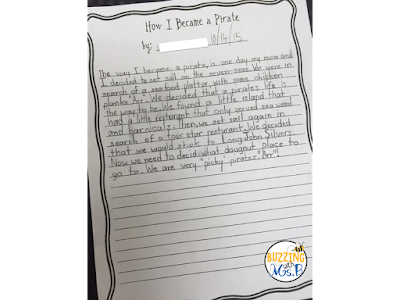 How I Became a Pirate
by: 10/14/15
The way I became a pirate, is one day my mom and
I decided to set sail on the seven-seas. We were in
search of a seafood platter, with some chicken
planks "Arr". We decided that a pirates life is
the way to be. We found a little island that
had a little resturant that only served sea weed
and barnicals. Then we set sail again in
search of a four star resturant. We decided
that we would stick to Long John Silvers.
Now we need to decid what dougnut place to
go to. We are very "picky" pirates. "Arr"
BUZZING
with
Ms. B